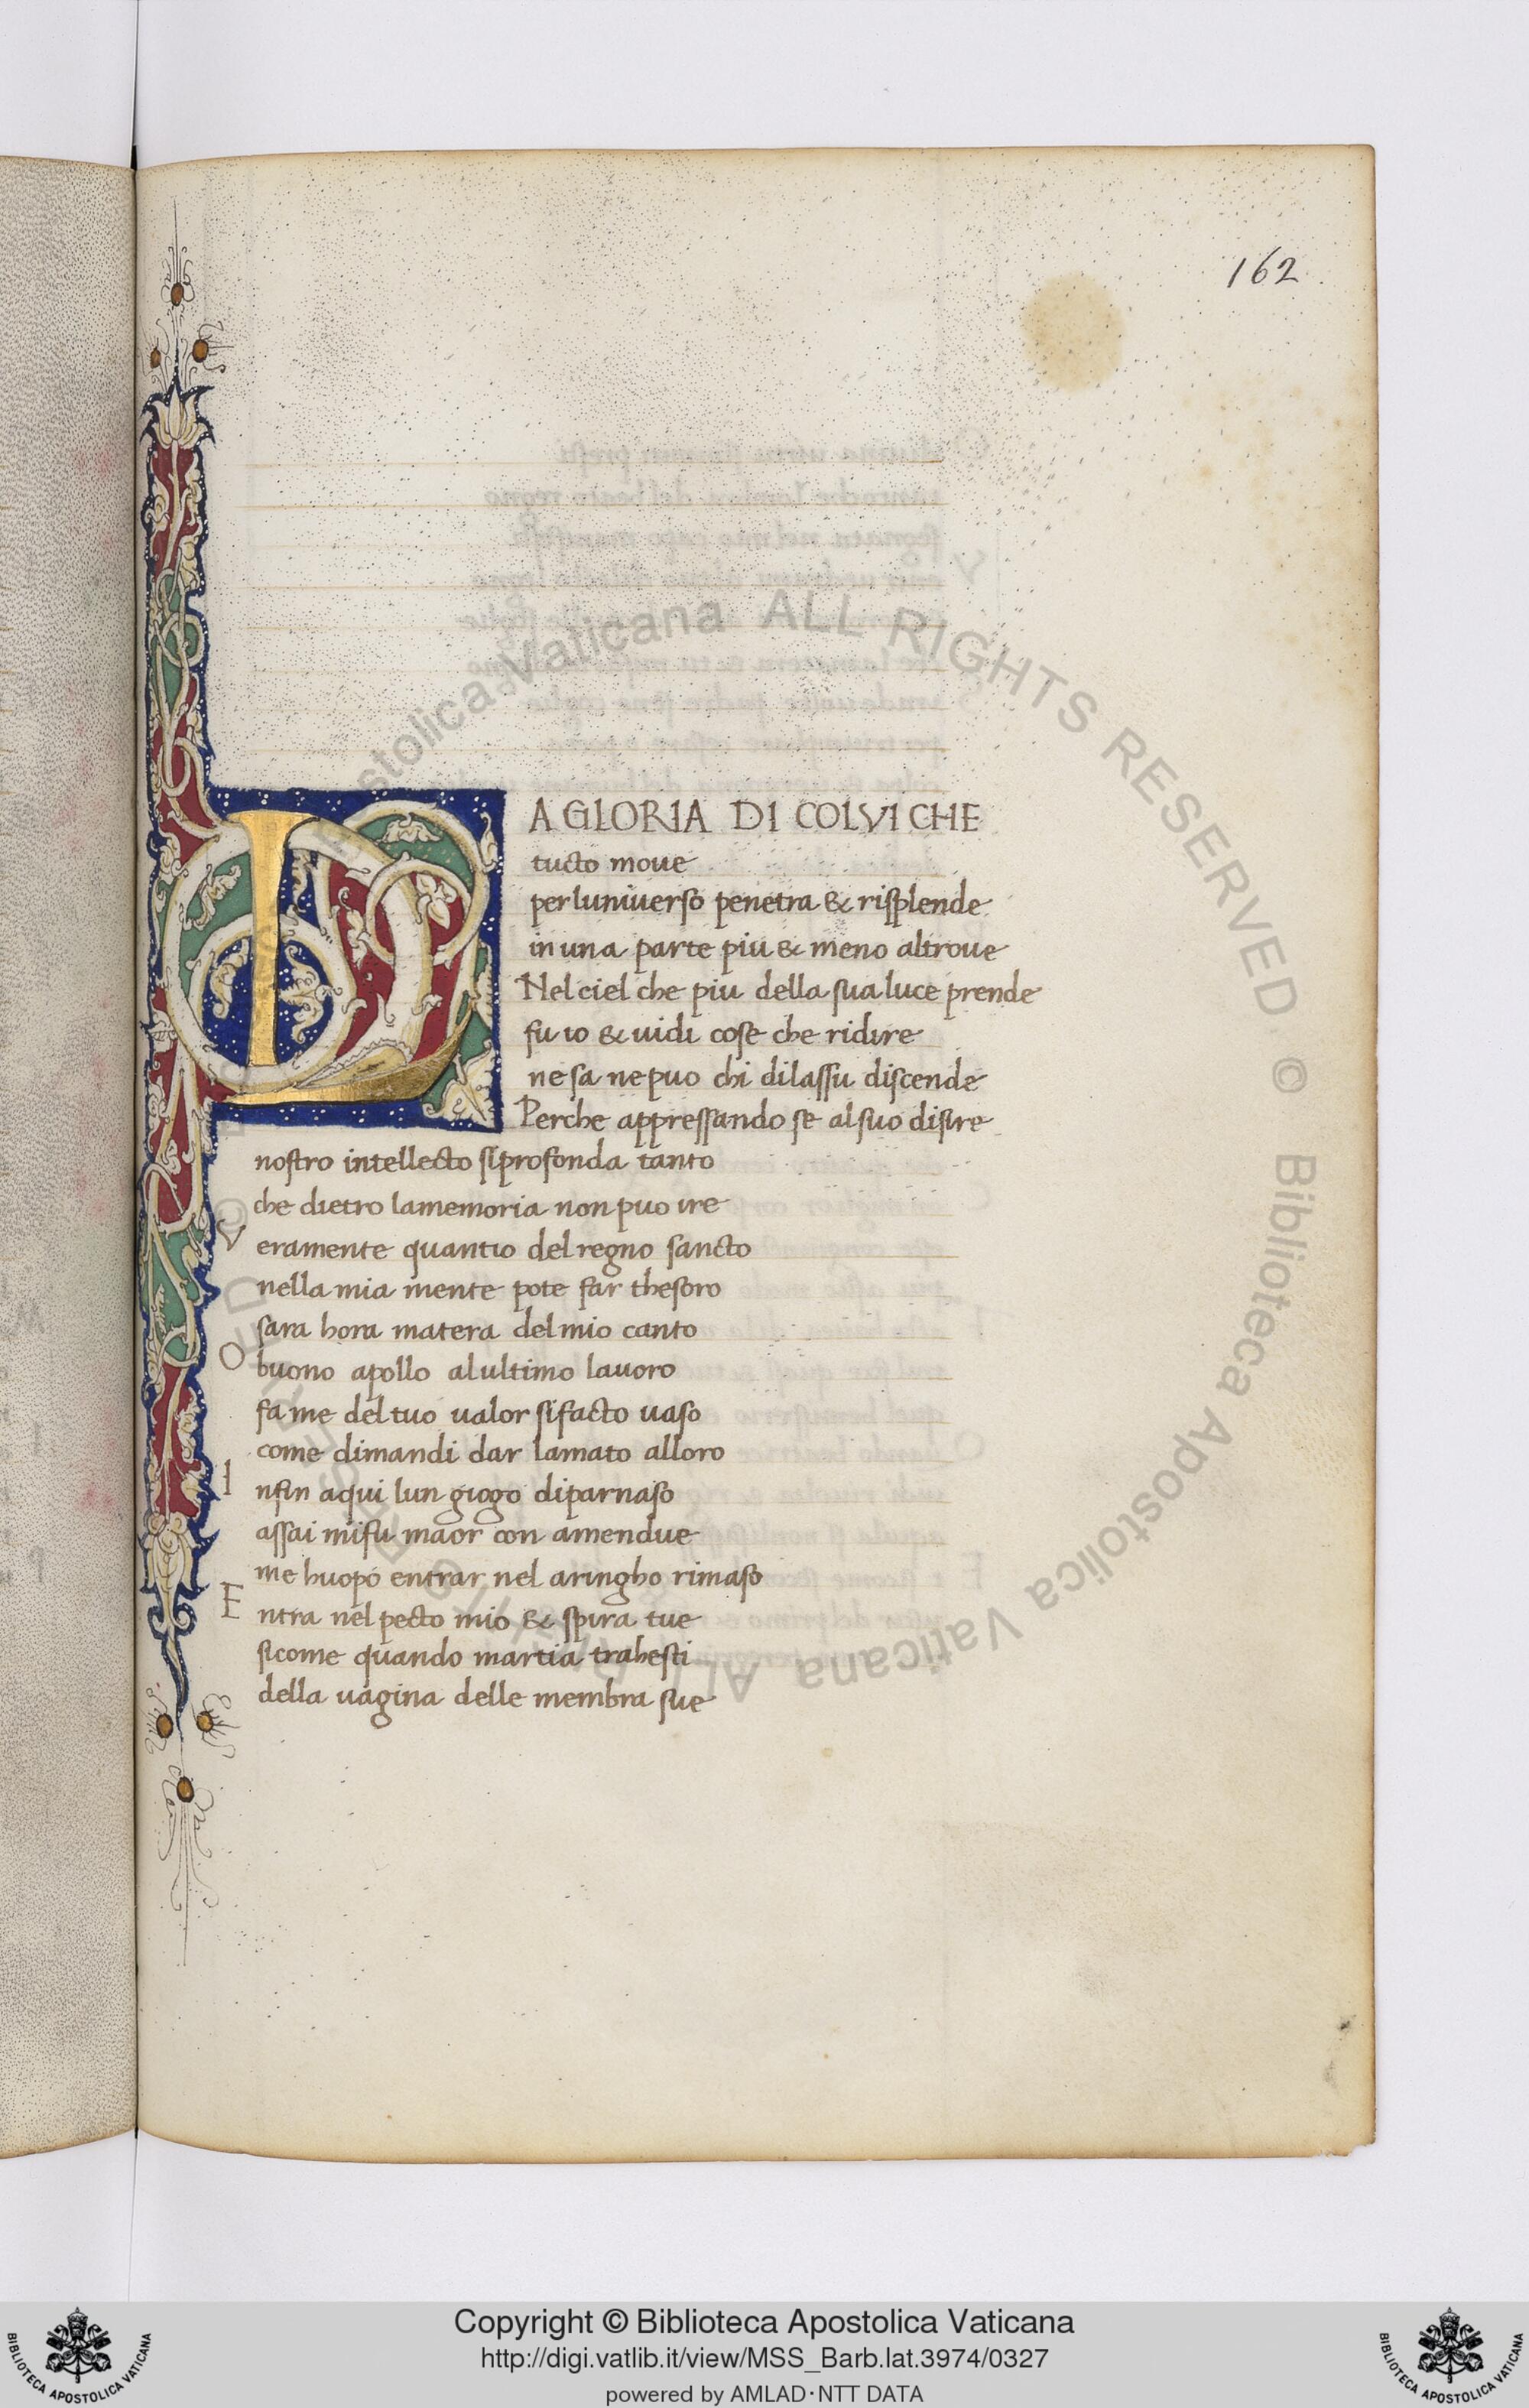 162
LA GLORIA DI COLVI CHE
tucto moue
perluniuerso penetra & risplende
in una parte piu & meno altroue
Nel ciel che piu della sua luce prende
fu io & uidi cose che ridire
ne sa ne puo chi dilassu discende
Perche appressando se al suo disire
nostro intellecto siprofonda tanto
che dietro lamemoria non puo ire
Veramente quantio del regno sancto
nella mia mente pote far thesoro
sara hora matera del mio canto
O buono apollo alultimo lauoro
fa me del tuo ualor sifacto uaso
come dimandi dar lamato alloro
Infin aqui lun giogo diparnaso
assai mifu maor con amendue
me huopo entrar nel aringho rimaso
Entra nel pecto mio & spira tue
sicome quando martia trahesti
della uagina delle membra sue
Apostolica Vaticana ALL RIGHTS RESERVED © Biblioteca Apostolica Vaticana ALL RIGHTS RESERVED ©
Copyright © Biblioteca Apostolica Vaticana
http://digi.vatlib.it/view/MSS_Barb.lat.3974/0327
powered by AMLAD·NTT DATA
BIBLIOTECA APOSTOLICA VATICANA
BIBLIOTECA APOSTOLICA VATICANA